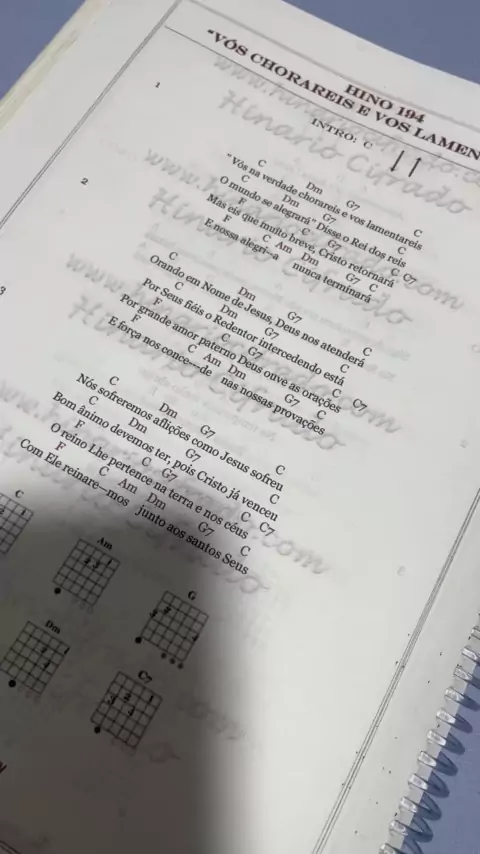 HINO 194
"VÓS CHORAREIS E VOS LAMEN
INTRO: C
1
C Dm G7 C
"Vós na verdade chorareis e vos lamentareis
C Dm G7 C
O mundo se alegrará" Disse o Rei dos reis
F C G7 C C7
Mas eis que muito breve, Cristo retornará
F C Am Dm G7 C
E nossa alegri--a nunca terminará
2
C Dm G7 C
Orando em Nome de Jesus, Deus nos atenderá
C Dm G7 C
Por Seus fiéis o Redentor intercedendo está
F C G7 C C7
Por grande amor paterno Deus ouve as orações
F C Am Dm G7 C
E força nos conce---de nas nossas provações
3
C Dm G7 C
Nós sofreremos aflições como Jesus sofreu
C Dm G7 C
Bom ânimo devemos ter, pois Cristo já venceu
F C G7 C C7
O reino Lhe pertence na terra e nos céus
F C Am Dm G7 C
Com Ele reinare--mos junto aos santos Seus
C
Am
G
Dm
C7